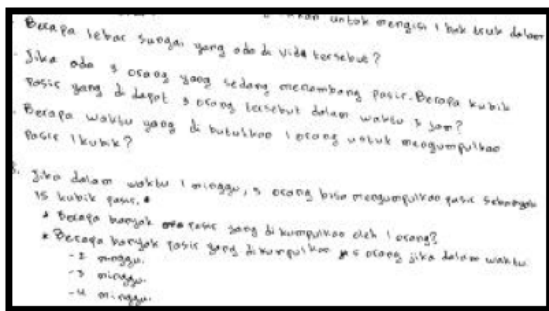 untuk mengisi 1 bak truk dalam
Berapa lebar sungai yang ada di vidio tersebut?
Jika ada 3 orang yang sedang menambang pasir. Berapa kubik
Pasir yang di dapat 3 orang tersebut dalam waktu 3 jam?
Berapa waktu yang di butuhkan 1 orang untuk mengumpulkan
Pasir 1 kubik?
Jika dalam waktu 1 minggu, 5 orang bisa mengumpulkan pasir sebanyak
15 kubik pasir.
* Berapa banyak pasir yang di kumpulkan oleh 1 orang?
* Berapa banyak pasir yang di kumpulkan 5 orang jika dalam waktu
- 2 minggu.
- 3 minggu.
- 4 minggu.